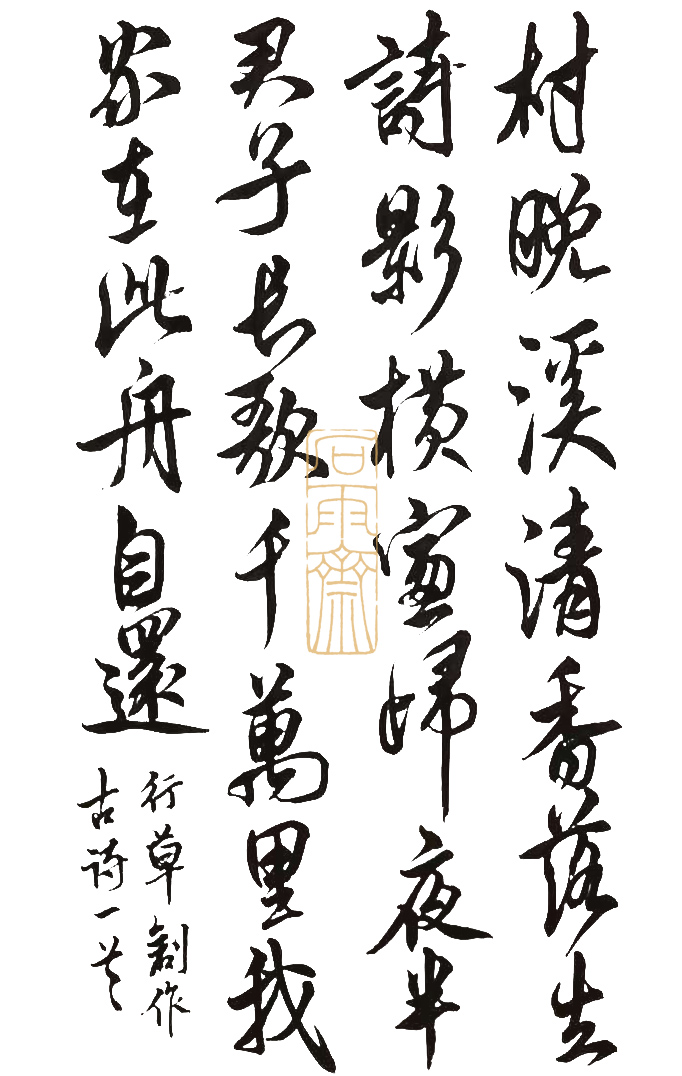 村晚溪清香落
詩影橫窗婦夜半
君子長歌千萬里我
家在此舟自還
行草創作
古詩一首
石雨齋